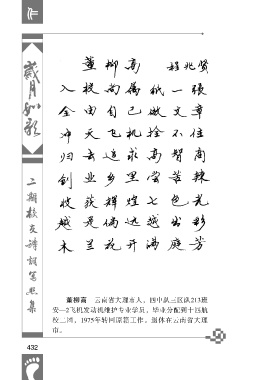 岁月如歌
二期校友诗词写照集
董柳高 程兆贤
入校尚属纸一张
全由自己做文章
冲天飞机拴不住
归去追求高智商
创业乡里尝苦辣
收获辉煌七色光
越是偏远越出彩
木兰花开满庭芳
董柳高 云南省大理市人,四中队三区队213班
安—2飞机发动机维护专业学员,毕业分配到十四航
校二团,1975年转回原籍工作。退休在云南省大理
市。
432